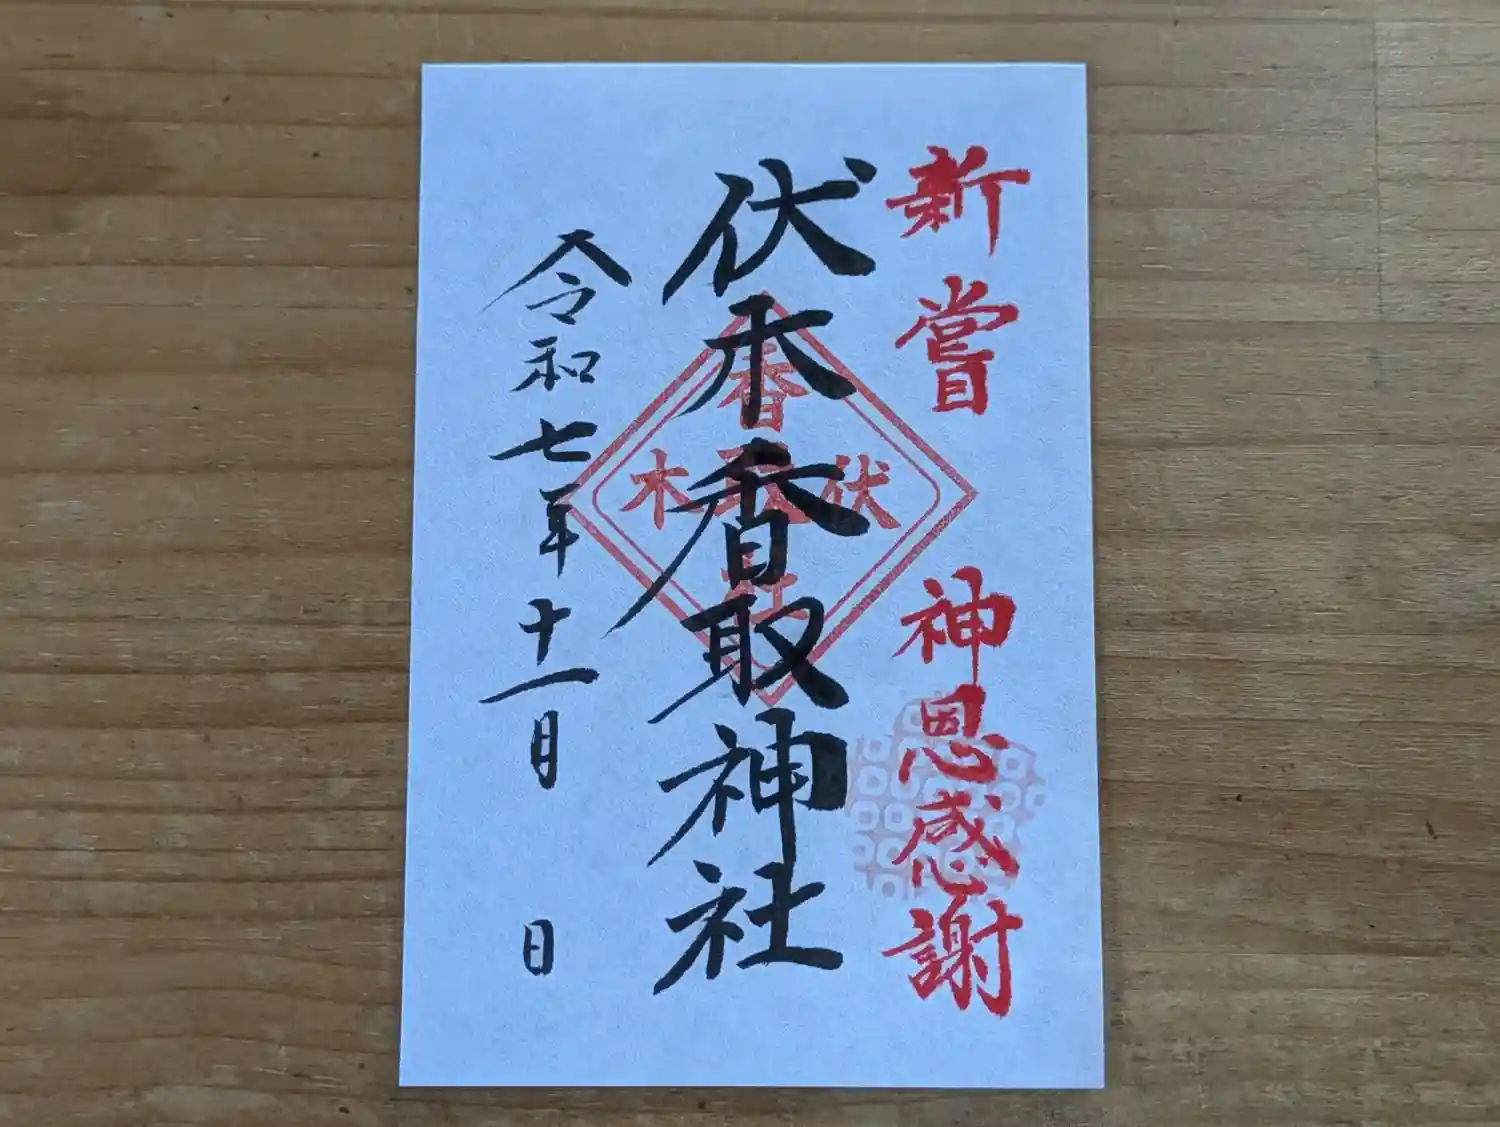 新嘗 神恩感謝
伏木香取神社
令和七年十一月 日
香
伏 木
社